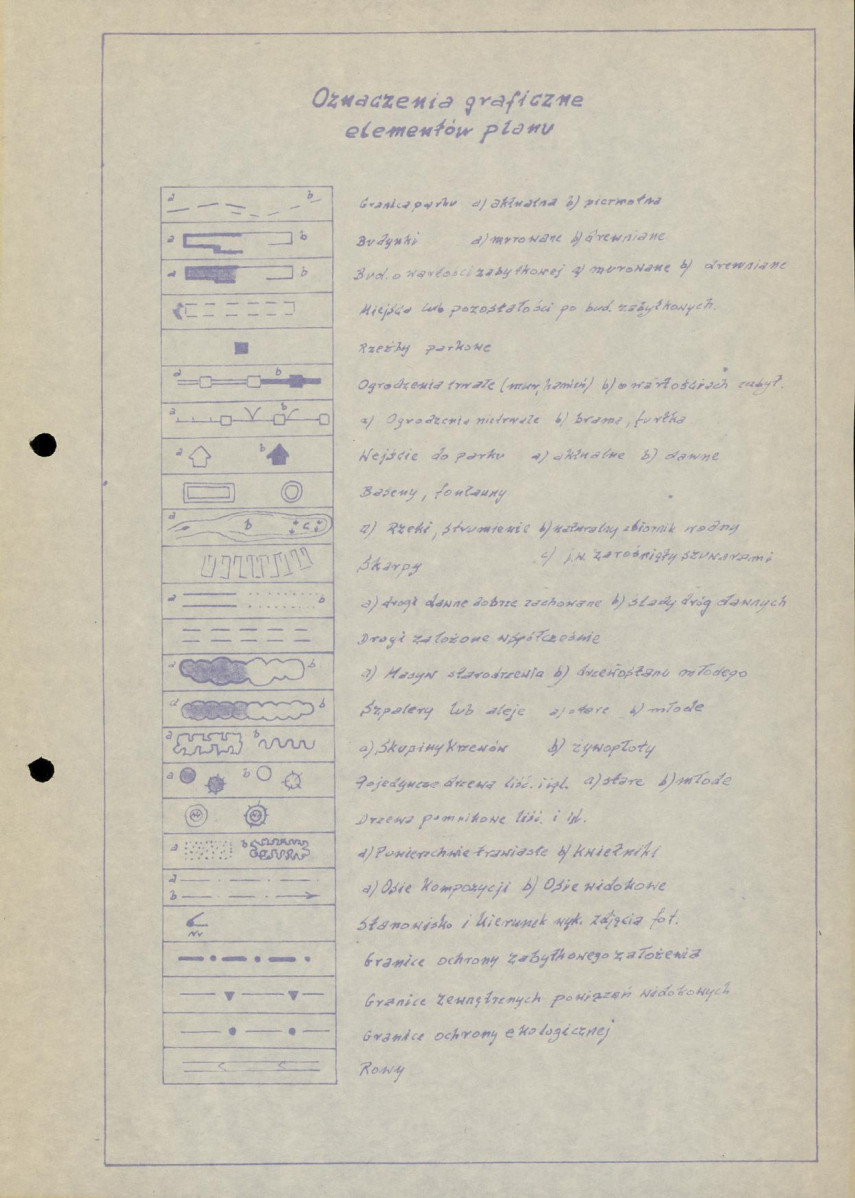 Oznaczenia graficzne
elementów planu
a b Granica parku a) aktualna b) pierwotna
a b Budynki a) murowane b) drewniane
a b Bud. o wartości zabytkowej a) murowane b) drewniane
Miejsca lub pozostałości po bud. zabytkowych.
Rzeźby parkowe
a b Ogrodzenia trwałe (mur, kamień) b) o wartościach zabyt.
a b a) Ogrodzenia nietrwałe b) brama, furtka
a b Wejście do parku a) aktualne b) dawne
Baseny, fontanny
a b c a) Rzeki, strumienie b) naturalny zbiornik wodny
c) j.w. zarośnięty szuwarami
Skarpy
a b a) drogi dawne dobrze zachowane b) ślady dróg dawnych
Drogi założone współcześnie
a b a) Masyw starodrzewia b) drzewostanu młodego
a b Szpalery lub aleje a) stare b) młode
a b a) Skupiny krzewów b) żywopłoty
a b Pojedyncze drzewa liść. i igl. a) stare b) młode
Drzewa pomnikowe liść. i
a b a) Powierzchnie trawiaste b) Kwietniki
a
b a) Osie kompozycji b) Osie widokowe
Nr Stanowisko i kierunek wyk. zdjęcia fot.
Granice ochrony zabytkowego założenia
Granice zewnętrznych powiązań widokowych
Granice ochrony ekologicznej
Rowy